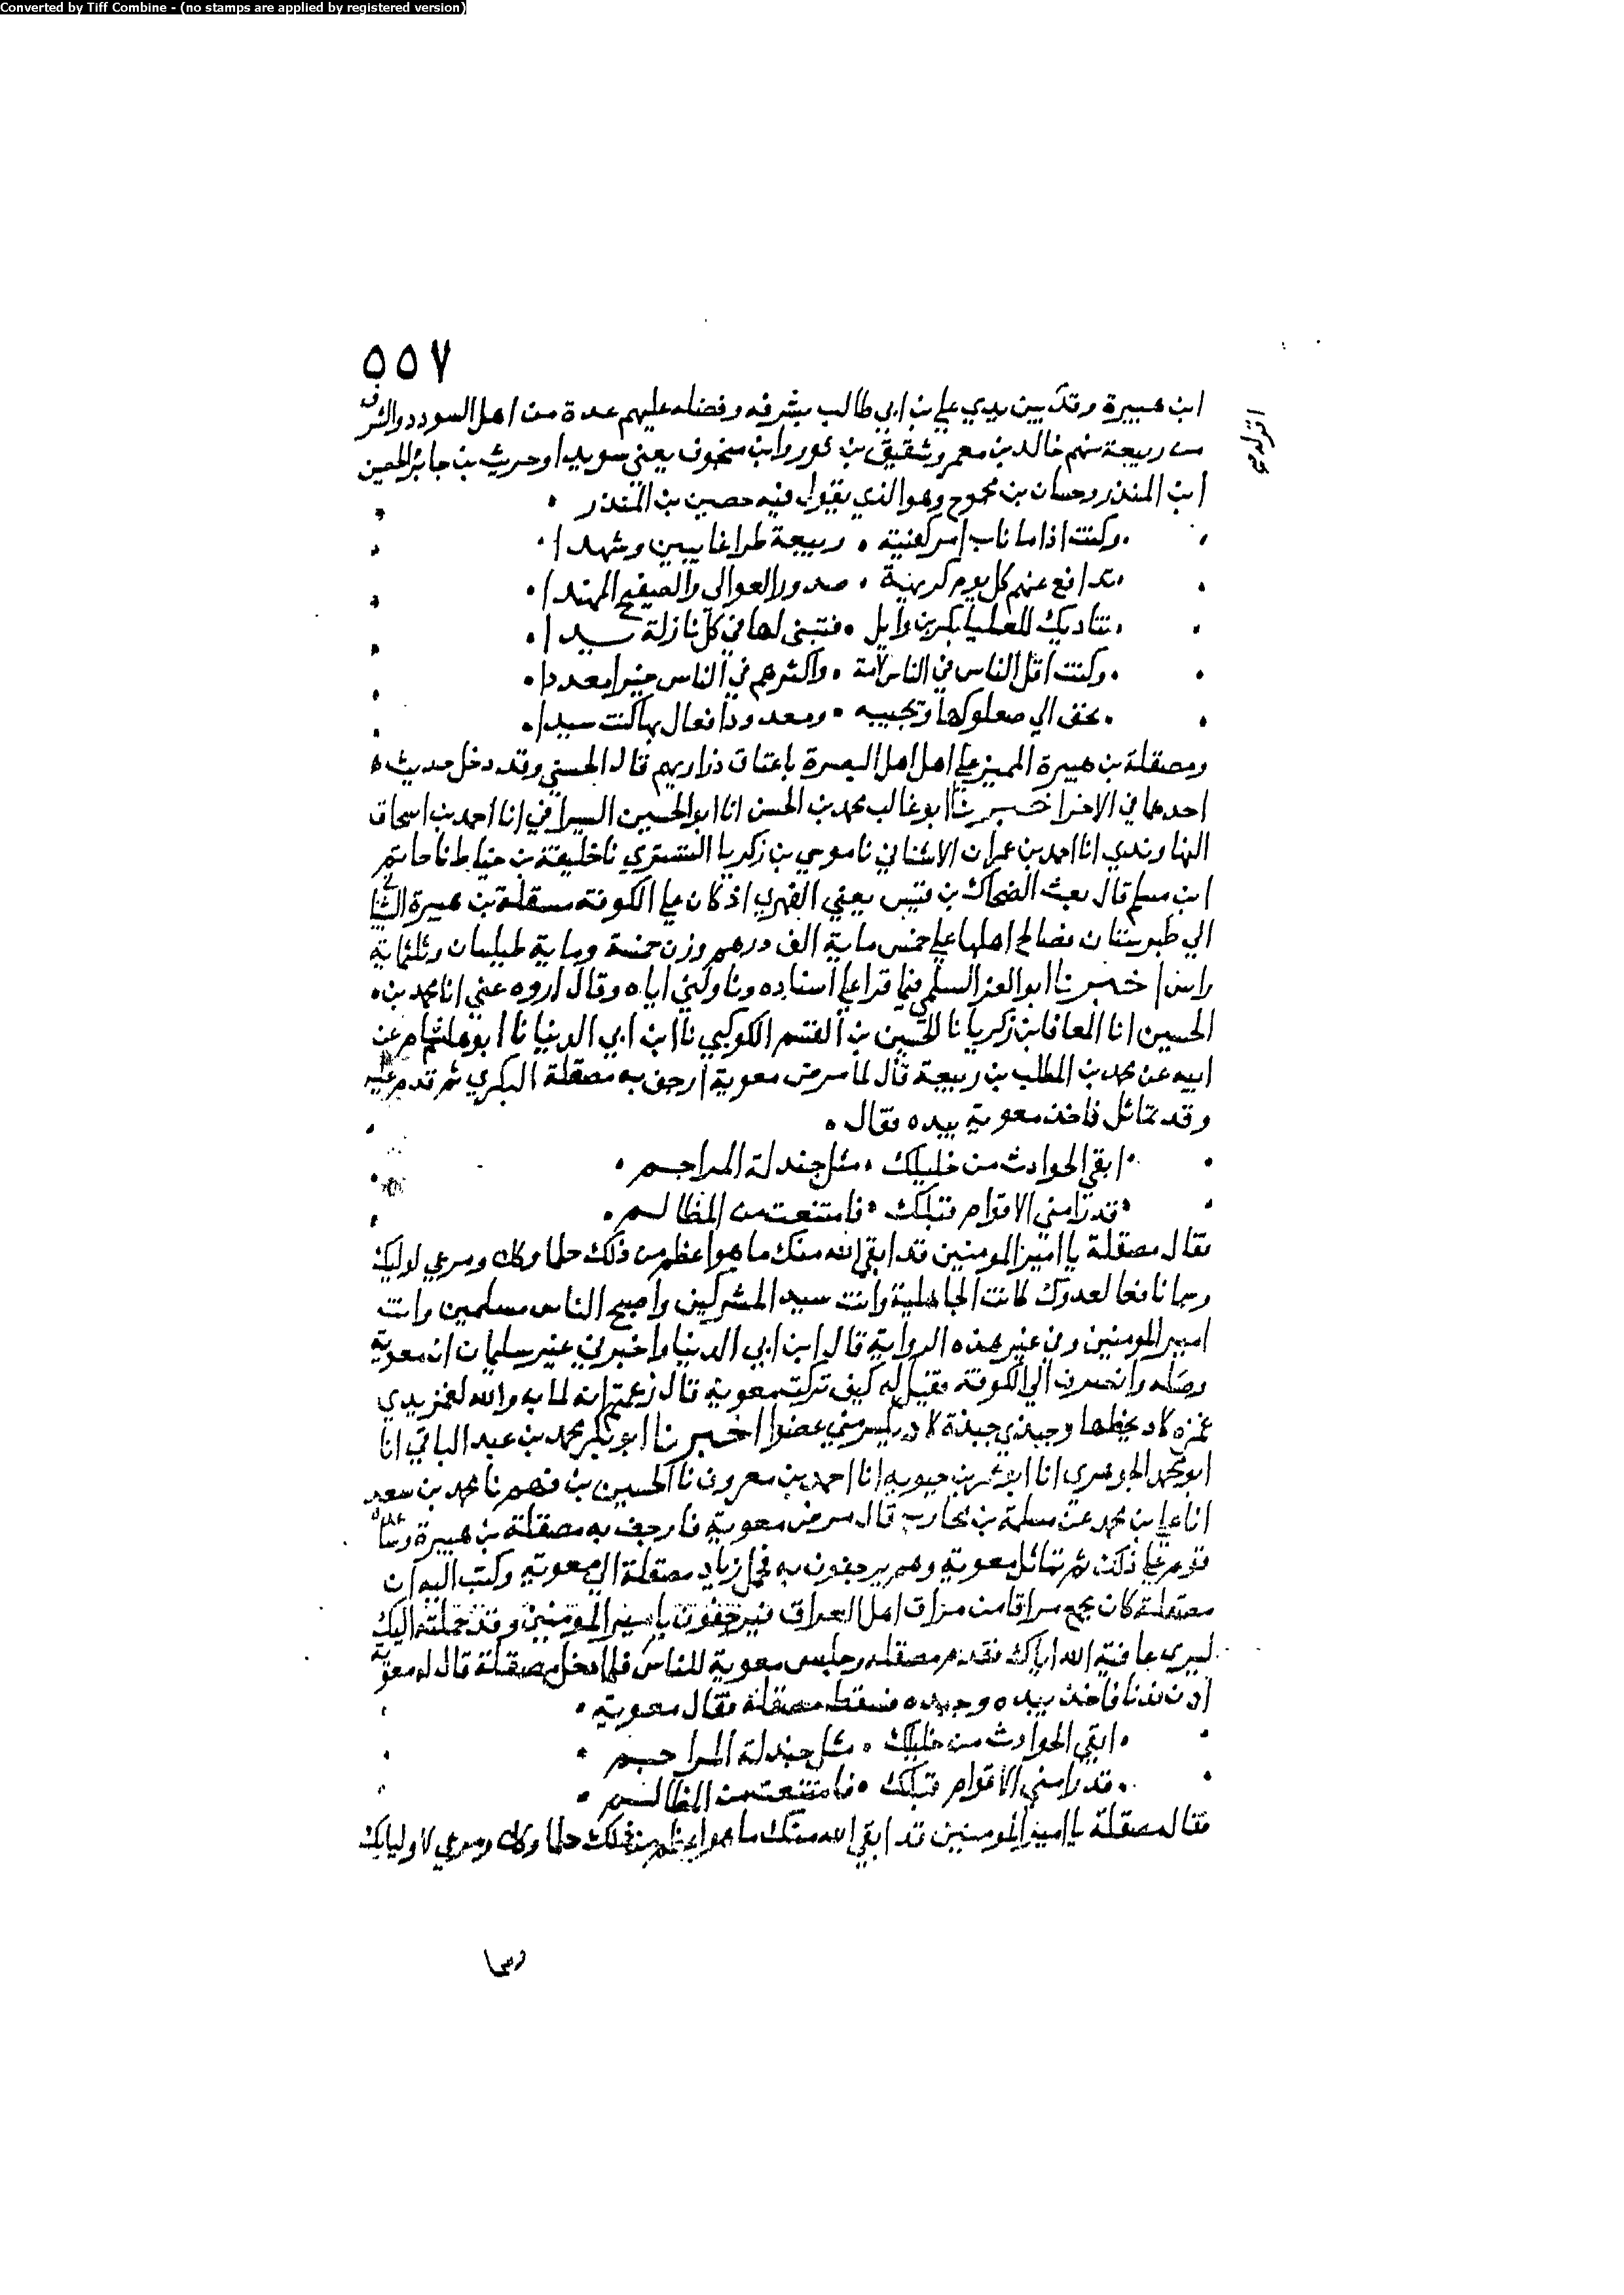 Converted by Tiff Combine - (no stamps are applied by registered version)
٥٥٧
ابن هبيرة وتد بين يدي علي بن ابي طالب بشرفه وفضله عليهم عدة من اهل السودد والشرف
من ربيعة منهم خالد بن معمر وشقيق بن ثور وابن منجوف يعني سويدا وحريث بن جابر الحصين
ابن المنذر وحسان بن محدوج وهو الذي يقول فيه حصين بن المنذر
وكنت اذا ما ناب امر كفيته ربيعة طرا غايبين وشهدا
تدافع عنهم كل يوم كريهة صدور العوالي والصفيح المهندا
تناديك للعليا بكر بن وايل فتبنى لها في كل نازلة سيدا
وكنت اقل الناس في الناس لامة واكثرهم في الناس خيرا معددا
نحف الي صعلوكها وتجيبه ومعدود افعال بها كنت سيدا
ومصقلة بن هبيرة المميز علي اهل اهل البصرة باعتاق ذراريهم قال الحسني وقد دخل حديث
احدهما في الاخر اخبرنا ابو غالب محمد بن الحسن انا ابو الحسين السيرافي انا احمد بن اسحاق
النهاوندي انا احمد بن عمران الاشناني نا موسي بن زكريا التستري نا خليفة بن خياط نا حاتم
ابن مسلم قال بعث الضحاك بن قيس يعني الفهري اذ كان علي الكوفة مسقلة بن هبيرة
الي طبرستان فصالح اهلها علي خمس ماية الف درهم وزن خمسة وماية طيلسان وثلثماية
راس اخبرنا ابو العز السلمي فيما قرا علي اسناده وناولني اياه وقال اروه عني انا محمد بن
الحسين انا المعافا بن زكريا نا الحسين بن القسم الكوكبي نا ابن ابي الدنيا نا ابو هشام عن
ابيه عن محمد بن المطلب بن ربيعة قال لما مرض معوية ارجف به مصقلة البكري ثم قدم عليه
وقد تماثل فاخذ معوية بيده فقال
ابقي الحوادث من خليلك مثل جندلة المراجم
قد رامني الاقوام قبلك فامتنعت من المظالم
فقال مصقلة يا امير المومنين قد ابقي الله منك ما هو اعظم من ذلك حلما وكلا ومرعي لوليك
وسما نافعا لعدوك كانت الجاهلية وانت سيد المشركين واصبح الناس مسلمين وانت
امير المومنين ومن غير هذه الرواية قال ابن ابي الدنيا واخبرني غير سليمان ان معوية
وصله وانصرف الي الكوفة فقيل له كيف تركت معوية قال زعمتم انه لما به والله لغمز يدي
غمزه كاد يحطمها وجبذني جبذة كاد يكسر مني عضوا اخبرنا ابو بكر محمد بن عبد الباقي انا
ابو محمد الجوهري انا ابو عمر بن حيويه انا احمد بن معروف نا الحسين بن فهم نا محمد بن سعد
انا علي بن محمد عن مسلمة بن محارب قال مرض معوية فارجف به مصقلة بن هبيرة وساعده
قوم علي ذلك ثم تماثل معوية وهم يرجفون به فحمل زياد مصقلة الي معوية وكتب اليه ان
مصقلة كان يجمع مراقا من مراق اهل العراق فيرجفون يا امير المومنين وقد حملته اليك
ليرى عافية الله اياك فقدم مصقلة وجلس معوية للناس فلما دخل مصقلة قال له معوية
ادن فدنا فاخذ بيده وجبده فسقط مصقلة فقال معوية
ابقي الحوادث من خليلك مثل جندلة المراجم
قد رامني الاقوام قبلك فامتنعت من المظالم
فقال مصقلة يا امير المومنين قد ابقي الله منك ما هو اعظم من ذلك حلما وكلا ومرعي لاوليايك
وسما